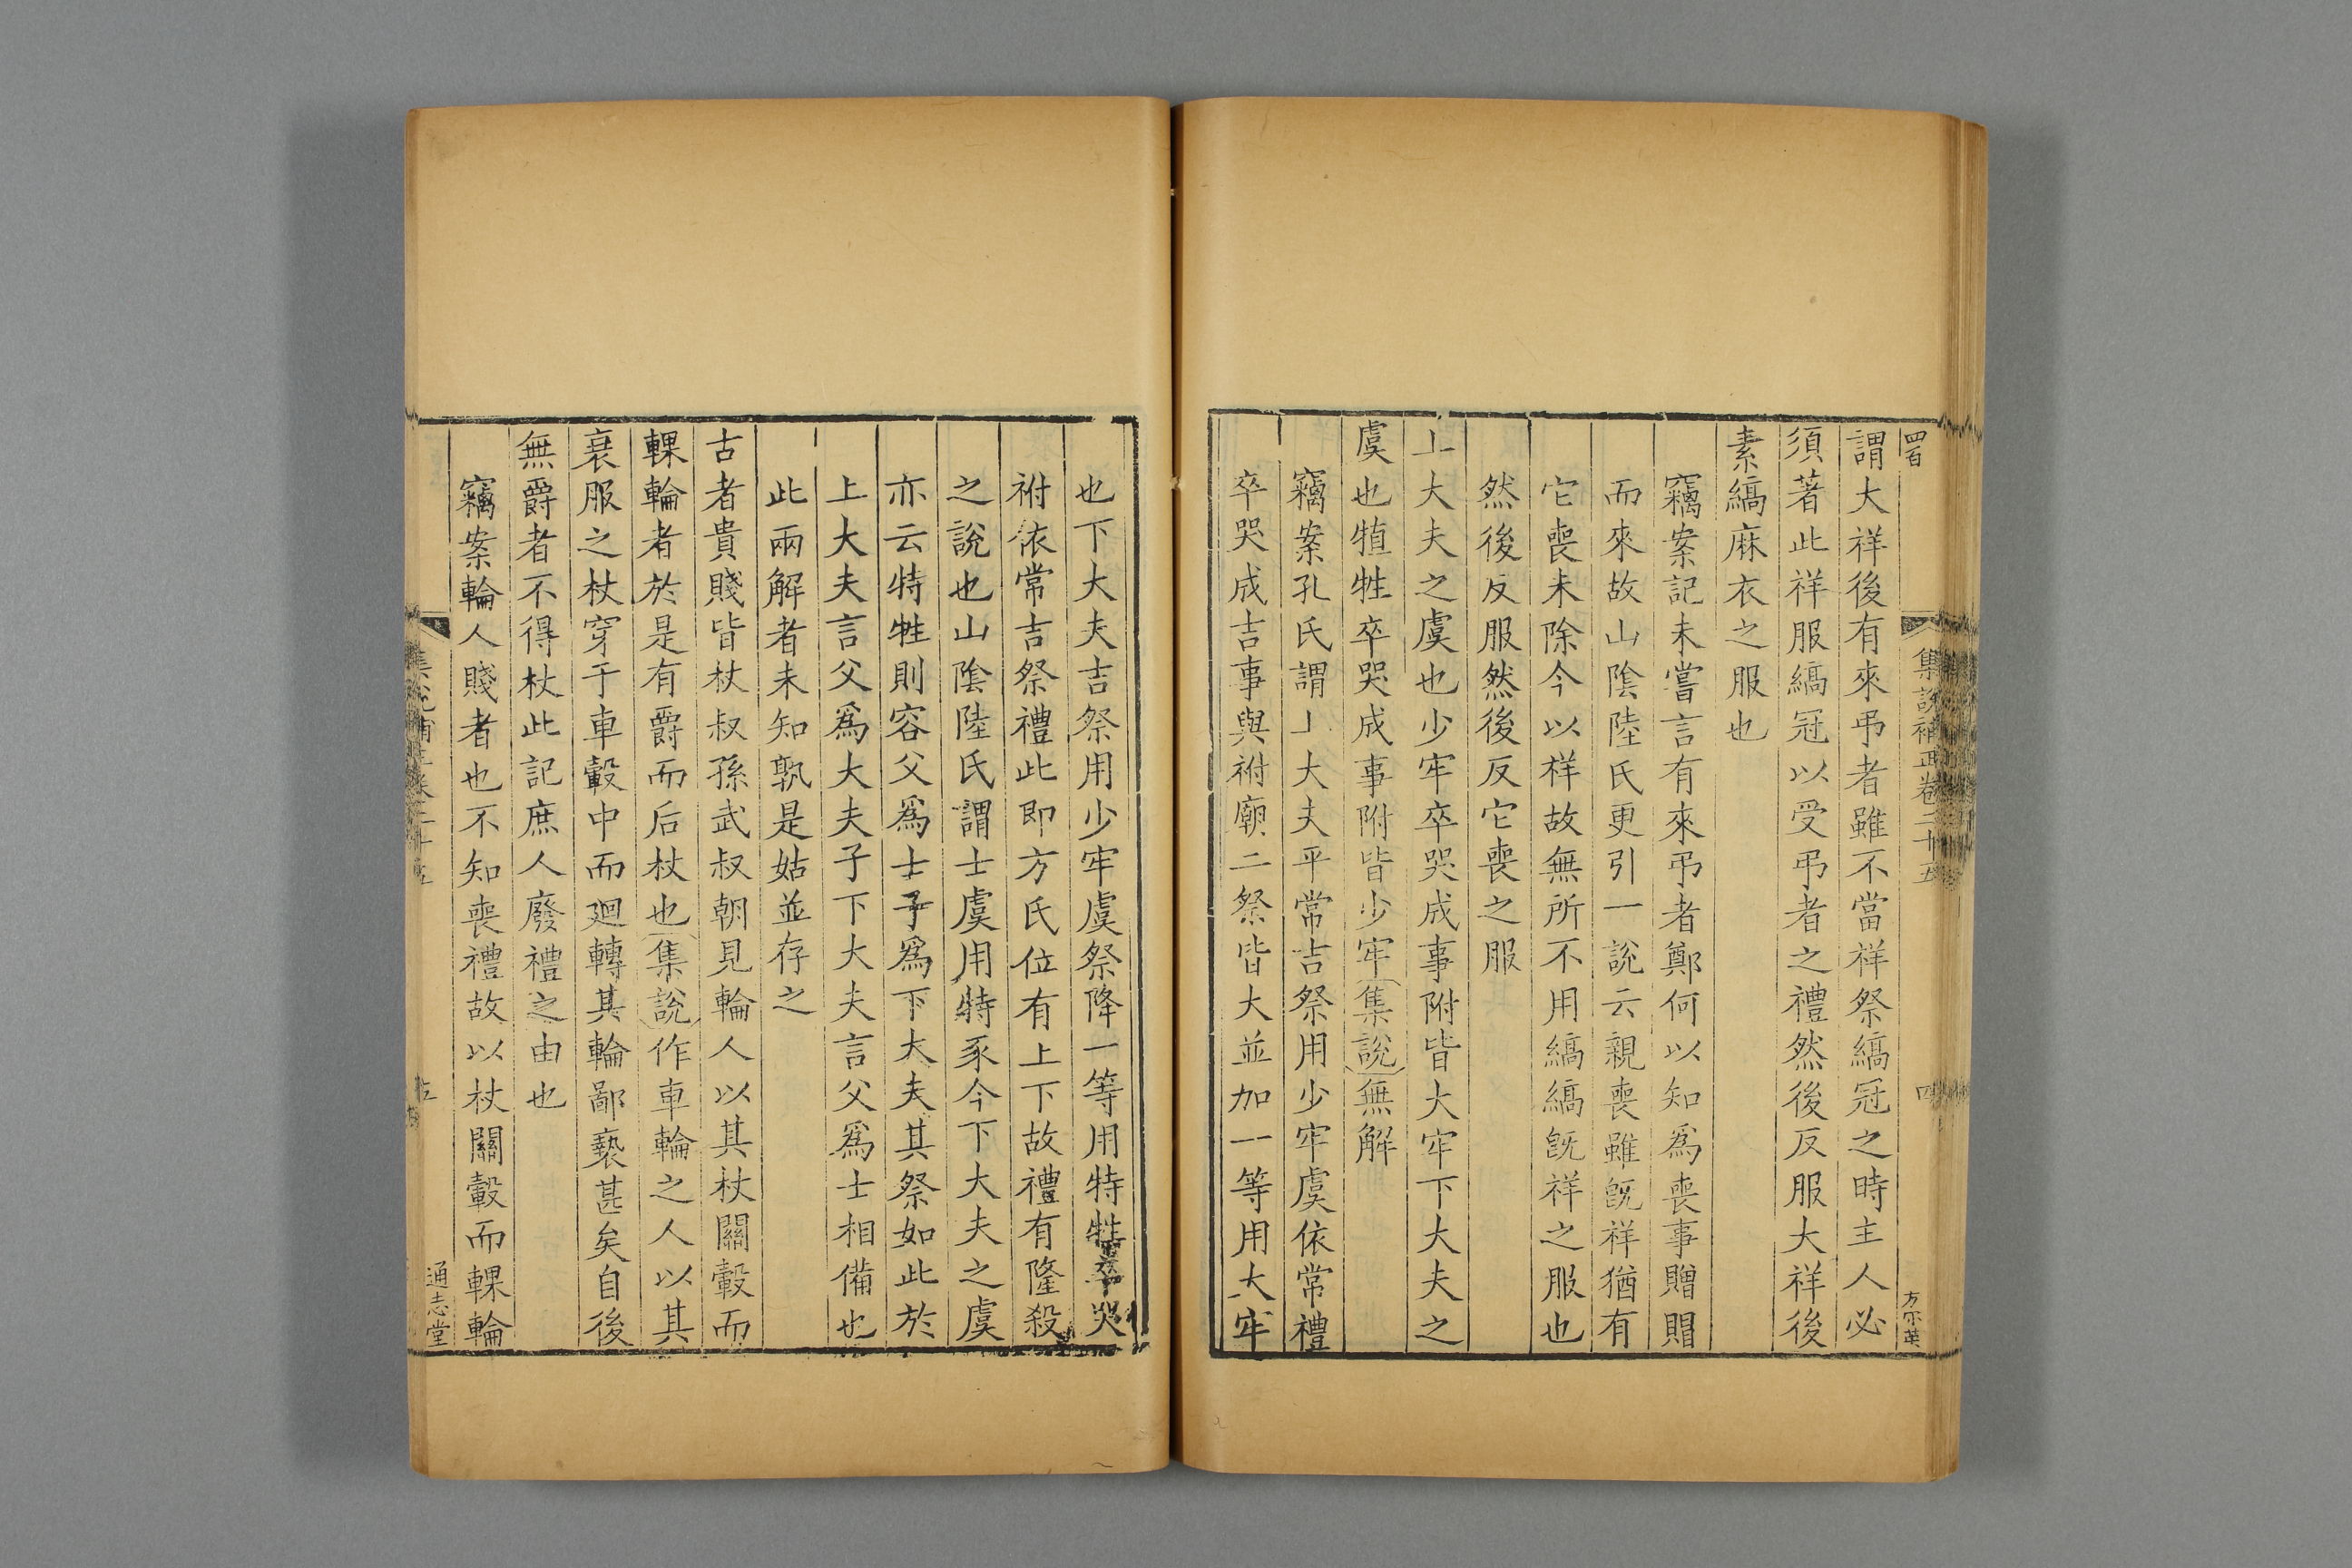 集說補正卷二十五
四
謂大祥後有來弔者雖不當祥祭縞冠之時主人必
須著此祥服縞冠以受弔者之禮然後反服大祥後
素縞麻衣之服也
竊案記未嘗言有來弔者鄭何以知爲喪事贈賵
而來故山陰陸氏更引一說云親喪雖旣祥猶有
它喪未除今以祥故無所不用縞縞旣祥之服也
然後反服然後反它喪之服
上大夫之虞也少牢卒哭成事附皆大牢下大夫之
虞也犆牲卒哭成事附皆少牢集說無解
竊案孔氏謂上大夫平常吉祭用少牢虞依常禮
卒哭成吉事與祔廟二祭皆大並加一等用大牢
也下大夫吉祭用少牢虞祭降一等用特牲卒哭
祔依常吉祭禮此即方氏位有上下故禮有隆殺
之說也山陰陸氏謂士虞用特豕今下大夫之虞
亦云特牲則容父爲士子爲下大夫其祭如此於
上大夫言父爲大夫子下大夫言父爲士相備也
此兩解者未知孰是姑並存之
古者貴賤皆杖叔孫武叔朝見輪人以其杖關轂而
輠輪者於是有爵而后杖也集說作車輪之人以其
衰服之杖穿于車轂中而廻轉其輪鄙褻甚矣自後
無爵者不得杖此記庶人廢禮之由也
竊案輪人賤者也不知喪禮故以杖關轂而輠輪
通志堂